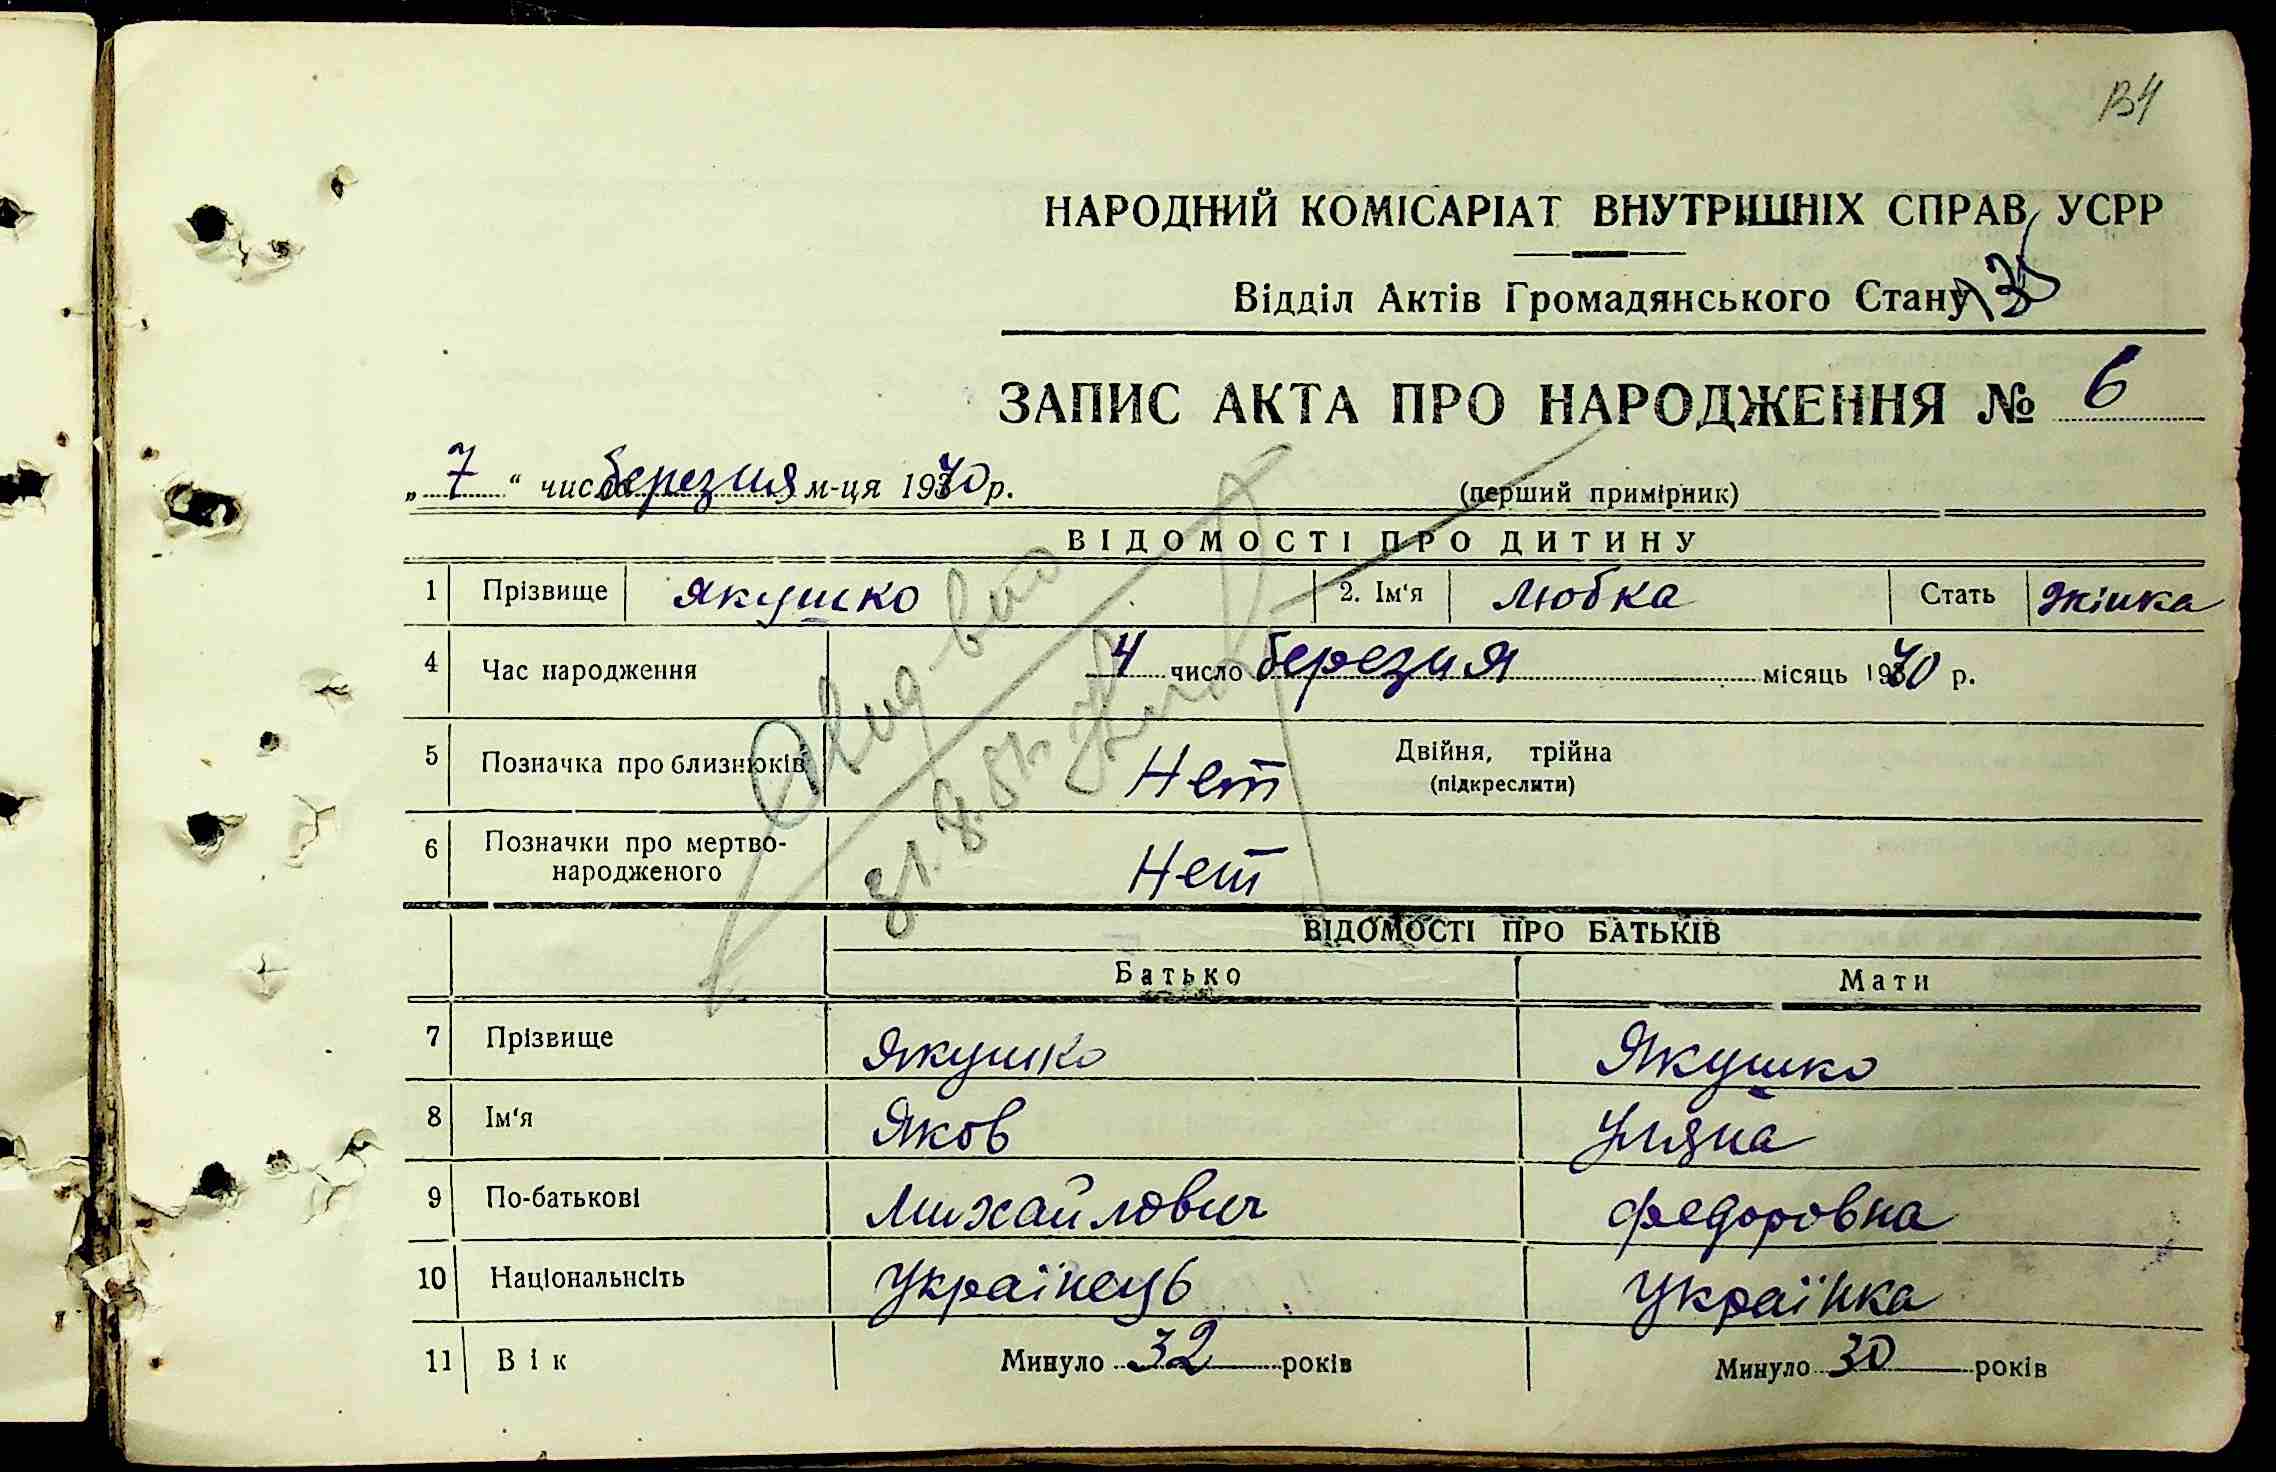 НАРОДНИЙ КОМІСАРІАТ ВНУТРІШНІХ СПРАВ УСРР
Відділ Актів Громадянського Стану
ЗАПИС АКТА ПРО НАРОДЖЕННЯ № 6
„ 7 “ число березня м-ця 1940 р.
(перший примірник)
ВІДОМОСТІ ПРО ДИТИНУ
1 Прізвище Якушко 2. Ім'я Любка Стать жінка
4 Час народження 4 число березня місяць 1940 р.
5 Позначка про близнюків Нет Двійня, трійна
(підкреслити)
6 Позначки про мертво-
народженого Нет
ВІДОМОСТІ ПРО БАТЬКІВ
Батько Мати
7 Прізвище Якушко Якушко
8 Ім'я Яков Уляна
9 По-батькові Михайлович Федоровна
10 Національнсіть Українець Українка
11 Вік Минуло 32 років Минуло 30 років